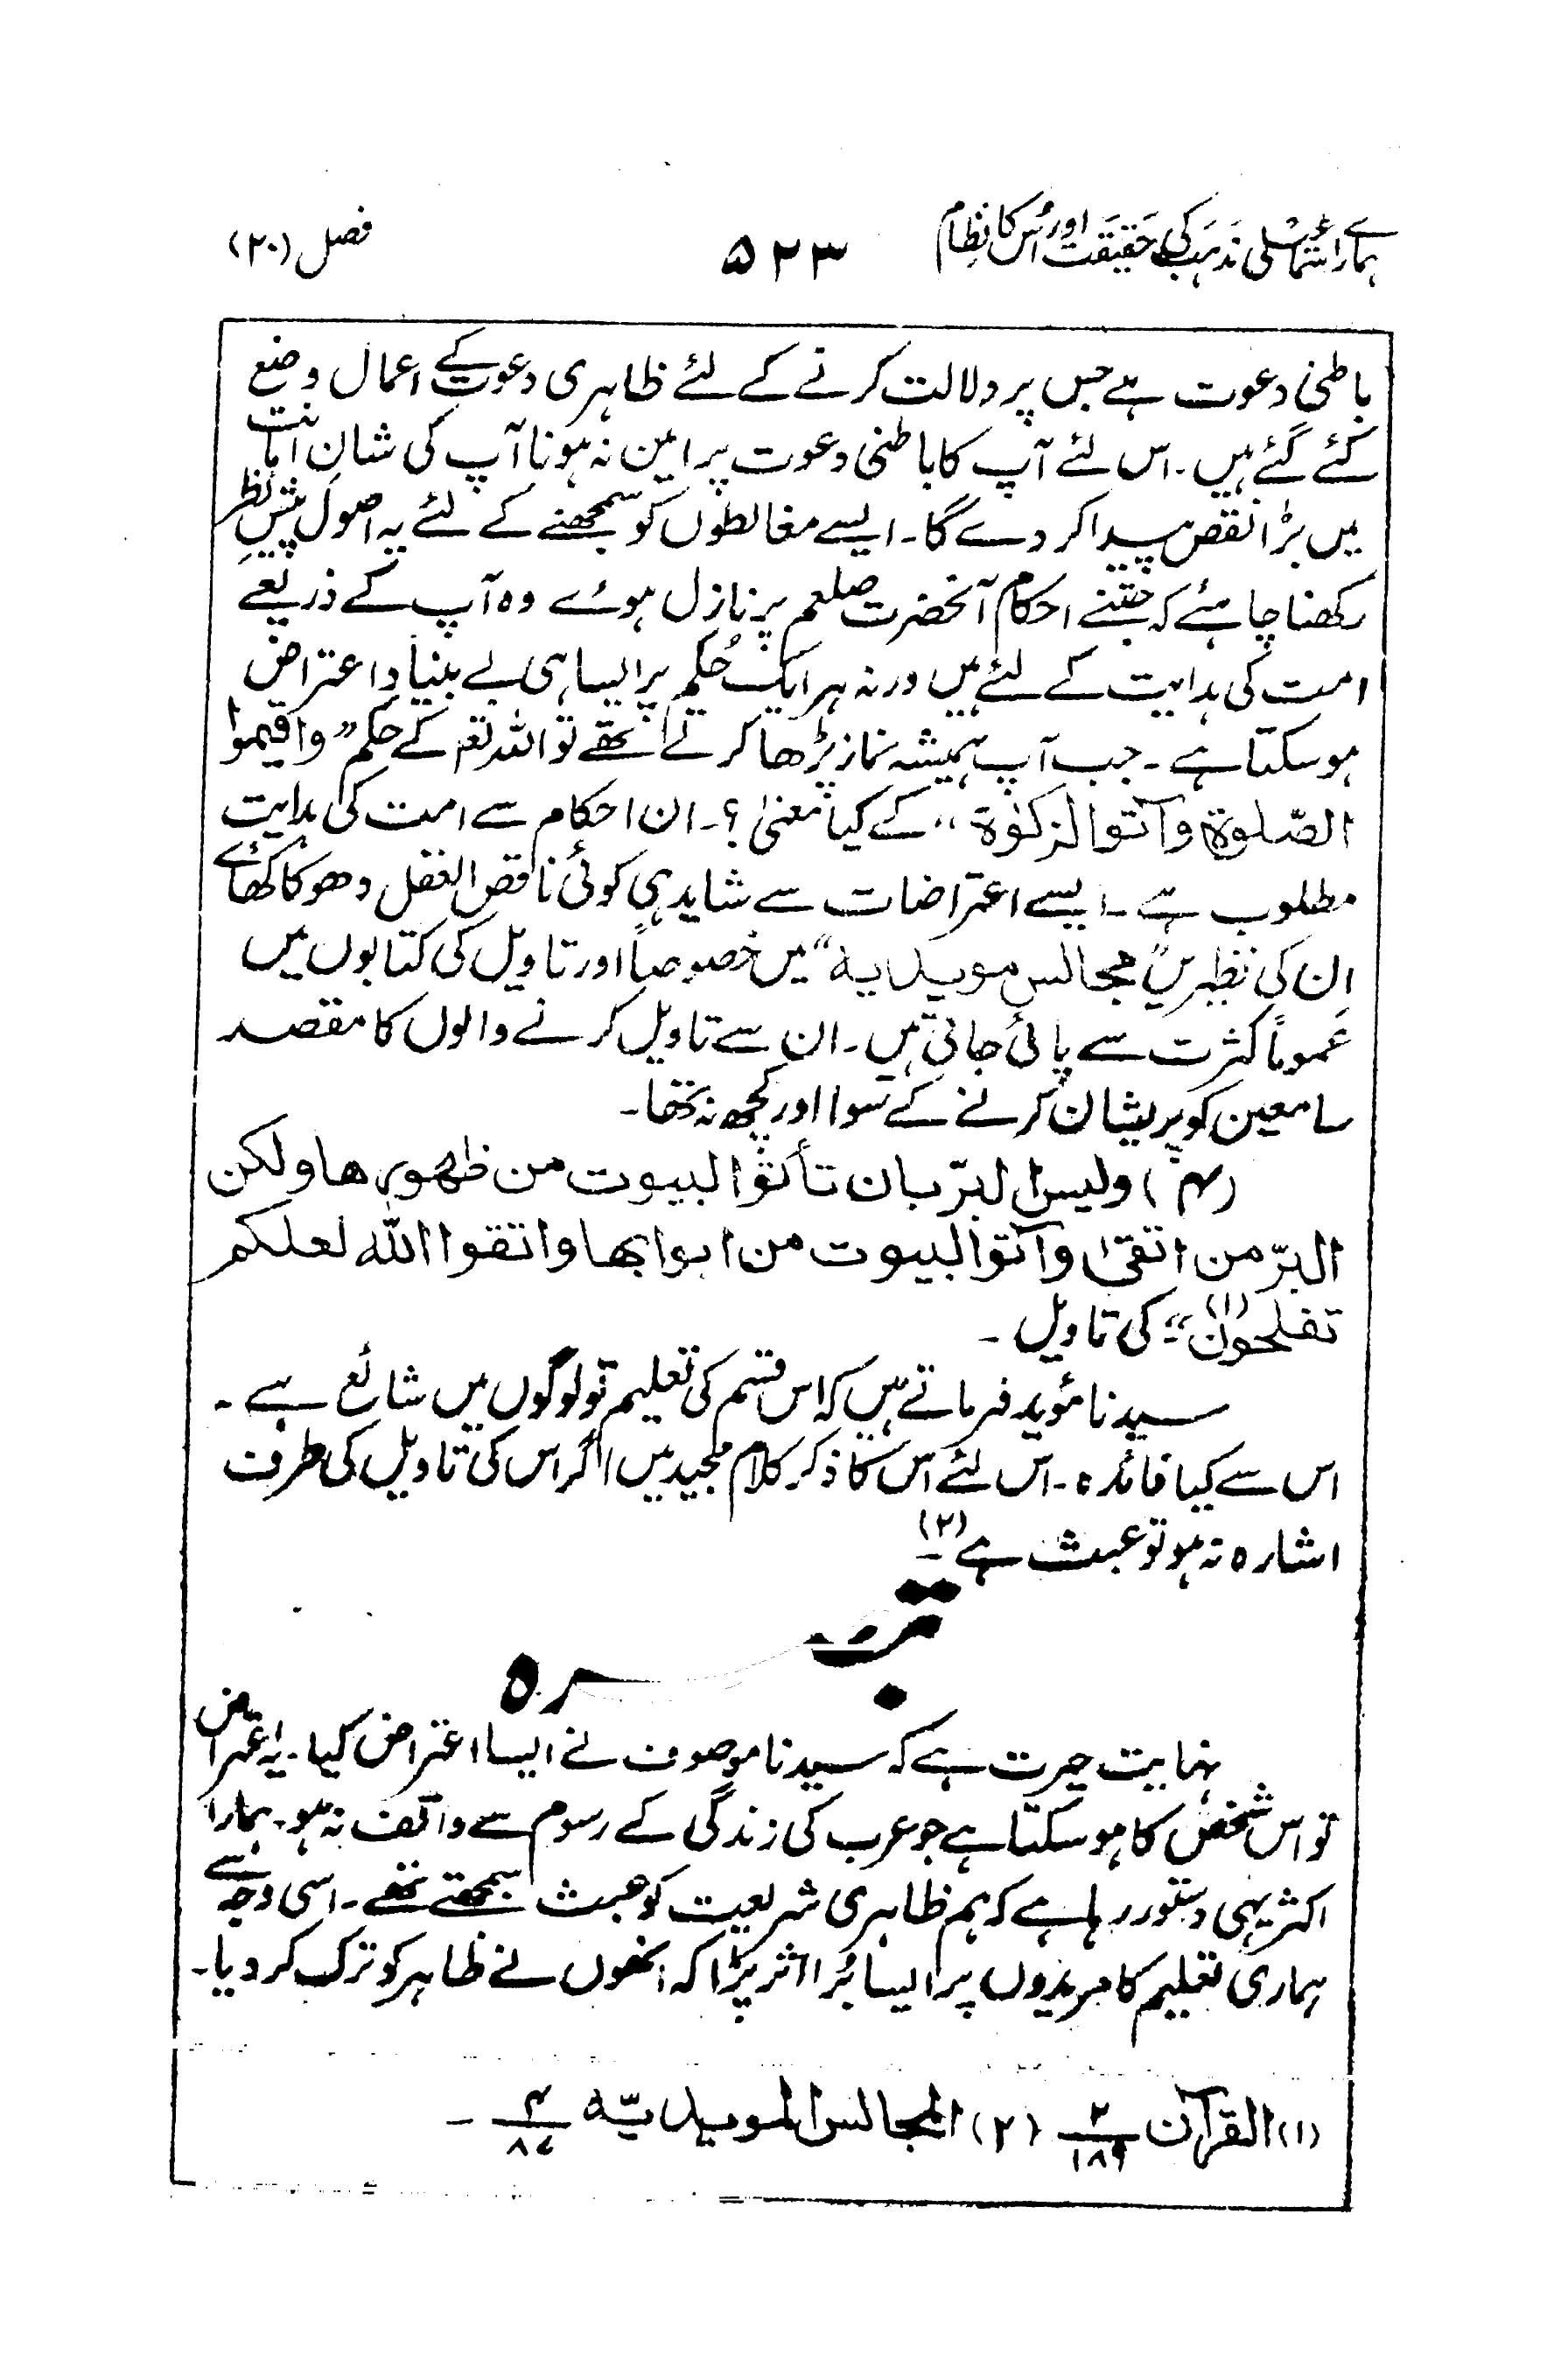 ہمارے اسمٰعیلی مذہب کی حقیقت اور اُس کا نظام
۵۲۳
فصل (۲۰)
باطنی دعوت ہے جس پر دلالت کرنے کے لئے ظاہری دعوت کے اعمال وضع
کئے گئے ہیں۔ اس لئے آپ کا باطنی دعوت پر امین نہ ہونا آپ کی شان امانت
میں بڑا نقص پیدا کر دے گا۔ ایسے مغالطوں کو سمجھنے کے لئے یہ اصول پیشِ نظر
رکھنا چاہئے کہ جتنے احکام آنحضرت صلعم پر نازل ہوئے وہ آپ کے ذریعے
امت کی ہدایت کے لئے ہیں ورنہ ہر ایک حُکم پر ایسا ہی بے بنیاد اعتراض
ہو سکتا ہے۔ جب آپ ہمیشہ نماز پڑھا کرتے تھے تو اللہ تعم کے حکم ”واقیموا
الصّلوۃ وآتوا لزکوٰۃ“ کے کیا معنیٰ ؟۔ ان احکام سے امت کی ہدایت
مطلوب ہے۔ ایسے اعتراضات سے شاید ہی کوئی ناقص العقل دھوکا کھائے
ان کی نظیریں ”مجالس مویدیہ“ میں خصوصاً اور تاویل کی کتابوں میں
عموماً کثرت سے پائی جاتی ہیں۔ ان سے تاویل کرنے والوں کا مقصد
سامعین کو پریشان کرنے کے سوا اور کچھ نہ تھا۔
(۴) ولیس البرّ بان تأتوا البیوت من ظھورھا ولکن
البرّ من اتقیٰ وآتوا لبیوت من ابوابھا واتقوا اللہ لعلکم
تفلحون“ (۱) کی تاویل ۔
سیدنا مؤید فرماتے ہیں کہ اس قسم کی تعلیم تو لوگوں میں شائع ہے ۔
اس سے کیا فائدہ ۔ اس لئے اس کا ذکر کلام مجید میں اگر اس کی تاویل کی طرف
اشارہ نہ ہو تو عبث ہے (۲)۔
تبصرہ
نہایت حیرت ہے کہ سیدنا موصوف نے ایسا اعتراض کیا۔ یہ اعتراض
تو اس شخص کا ہو سکتا ہے جو عرب کی زندگی کے رسوم سے واقف نہ ہو۔ ہمارا
اکثر یہی دستور رہا ہے کہ ہم ظاہری شریعت کو عبث سمجھتے تھے۔ اسی وجہ سے
ہماری تعلیم کا مریدوں پر ایسا بُرا اثر پڑا کہ انھوں نے ظاہر کو ترک کر دیا۔
(۱) القرآن ۲/۱۸۹ (۲) المجالس المویدیّہ ۴/۸۷ ۔